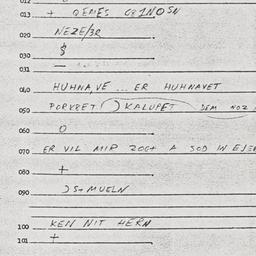 012
013 + QEMES CBINOSN
020 NEZE/3R
§
030
031 —
040 HUHNA,VE ... ER HUHNAVET
050 PORKRET ) KALUPET DEM NOZ
060 O
070 ER VIL MIR ZOG+ A SOD IN EJER
080 +
090 )S+MUELN
100 KEN NIT HERN
101 +